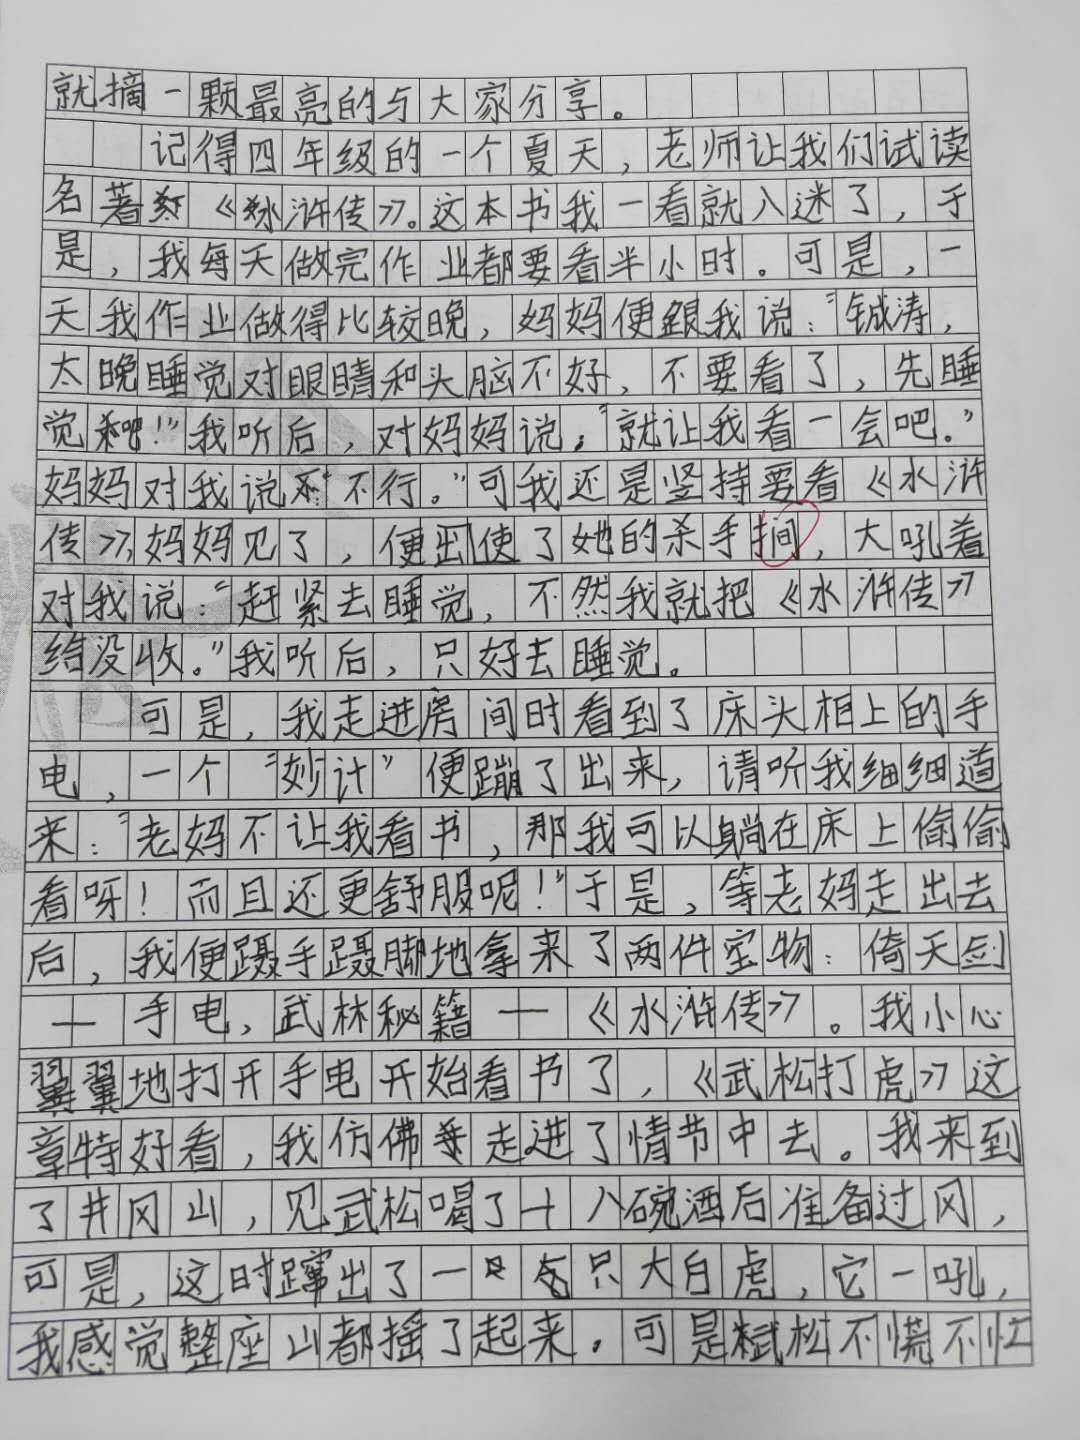 就摘一颗最亮的与大家分享。
记得四年级的一个夏天，老师让我们试读
名著《水浒传》。这本书我一看就入迷了，于
是，我每天做完作业都要看半小时。可是，一
天我作业做得比较晚，妈妈便跟我说："铖涛，
太晚睡觉对眼睛和头脑不好，不要看了，先睡
觉吧！"我听后，对妈妈说："就让我看一会吧。"
妈妈对我说："不行。"可我还是坚持要看《水浒
传》，妈妈见了，便出使了她的杀手锏，大吼着
对我说："赶紧去睡觉，不然我就把《水浒传》
给没收。"我听后，只好去睡觉。
可是，我走进房间时看到了床头柜上的手
电，一个"妙计"便蹦了出来，请听我细细道
来："老妈不让我看书，那我可以躺在床上偷偷
看呀！而且还更舒服呢！"于是，等老妈走出去
后，我便蹑手蹑脚地拿来了两件宝物：倚天剑
——手电，武林秘籍——《水浒传》。我小心
翼翼地打开手电开始看书了，《武松打虎》这
章特好看，我仿佛走进了情节中去。我来到
了井冈山，见武松喝了十八碗酒后准备过冈，
可是，这时蹿出了一只大白虎，它一吼，
我感觉整座山都摇了起来。可是武松不慌不忙